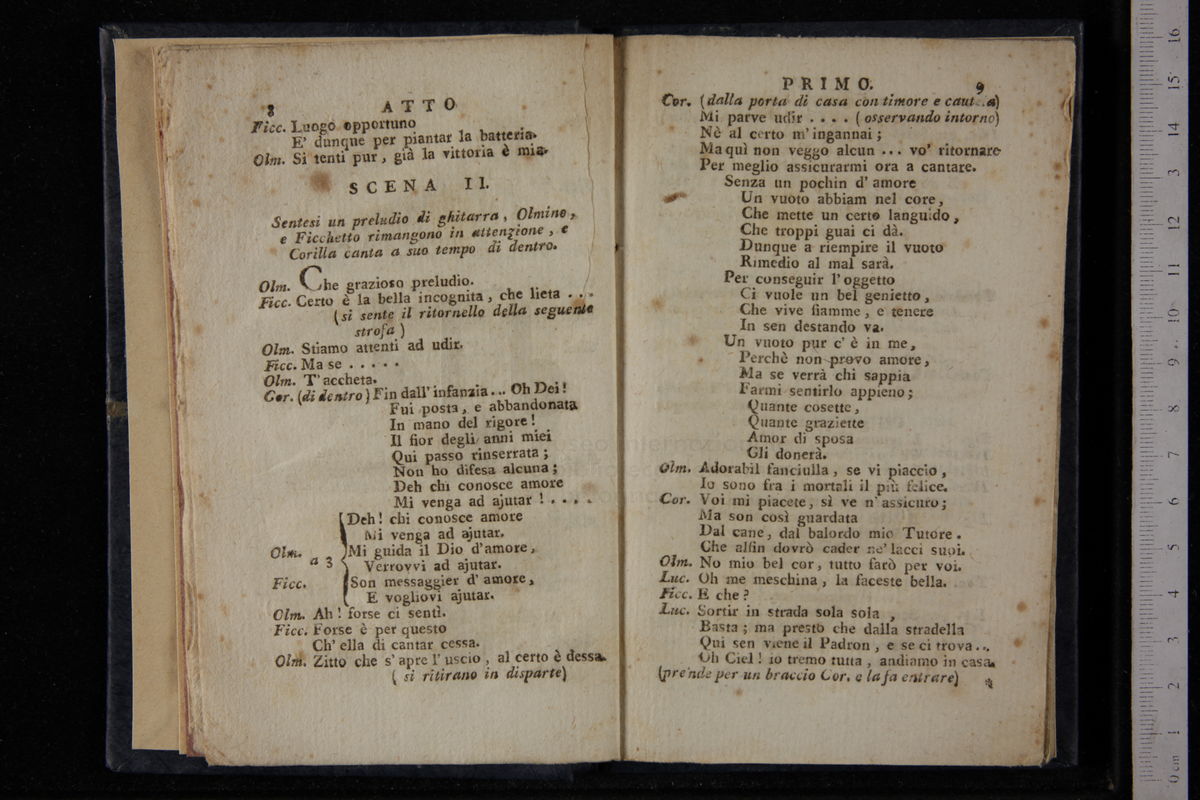 8 ATTO
Ficc. Luogo opportuno
E' dunque per piantar la batteria.
Olm. Si tenti pur, già la vittoria è mia.
SCENA II.
Sentesi un preludio di ghitarra, Olmino,
e Ficchetto rimangono in attenzione, e
Corilla canta a suo tempo di dentro.
Olm. Che grazioso preludio.
Ficc. Certo è la bella incognita, che lieta ...
(si sente il ritornello della seguente
strofa)
Olm. Stiamo attenti ad udir.
Ficc. Ma se .....
Olm. T'accheta.
Cor. (di dentro) Fin dall'infanzia... Oh Dei!
Fui posta, e abbandonata
In mano del rigore!
Il fior degli anni miei
Qui passo rinserrata;
Non ho difesa alcuna;
Deh chi conosce amore
Mi venga ad ajutar! ....
Deh! chi conosce amore
Mi venga ad ajutar.
Olm. a 3 Mi guida il Dio d'amore,
Verrovvi ad ajutar.
Ficc. Son messaggier d'amore,
E vogliovi ajutar.
Olm. Ah! forse ci sentì.
Ficc. Forse è per questo
Ch'ella di cantar cessa.
Olm. Zitto che s'apre l'uscio, al certo è dessa.
(si ritirano in disparte)
PRIMO. 9
Cor. (dalla porta di casa con timore e
Mi parve udir .... (osservando intorno)
Nè al certo m'ingannai;
Ma quì non veggo alcun ... vo' ritornare
Per meglio assicurarmi ora a cantare.
Senza un pochin d'amore
Un vuoto abbiam nel core,
Che mette un certo languido,
Che troppi guai ci dà.
Dunque a riempire il vuoto
Rimedio al mal sarà.
Per conseguir l'oggetto
Ci vuole un bel genietto,
Che vive fiamme, e tenere
In sen destando va.
Un vuoto pur c'è in me,
Perchè non provo amore,
Ma se verrà chi sappia
Farmi sentirlo appieno;
Quante cosette,
Quante graziette
Amor di sposa
Gli donerà.
Olm. Adorabil fanciulla, se vi piaccio,
Io sono fra i mortali il più felice.
Cor. Voi mi piacete, sì ve n'assicuro;
Ma son così guardata
Dal cane, dal balordo mio Tutore.
Che alfin dovrò cader ne' lacci suoi.
Olm. No mio bel cor, tutto farò per voi.
Luc. Oh me meschina, la faceste bella.
Ficc. E che?
Luc. Sortir in strada sola sola,
Basta; ma presto che dalla stradella
Qui sen viene il Padron, e se ci trova...
Oh Ciel! io tremo tutta, andiamo in casa.
(prende per un braccio Cor. e la fa entrare)